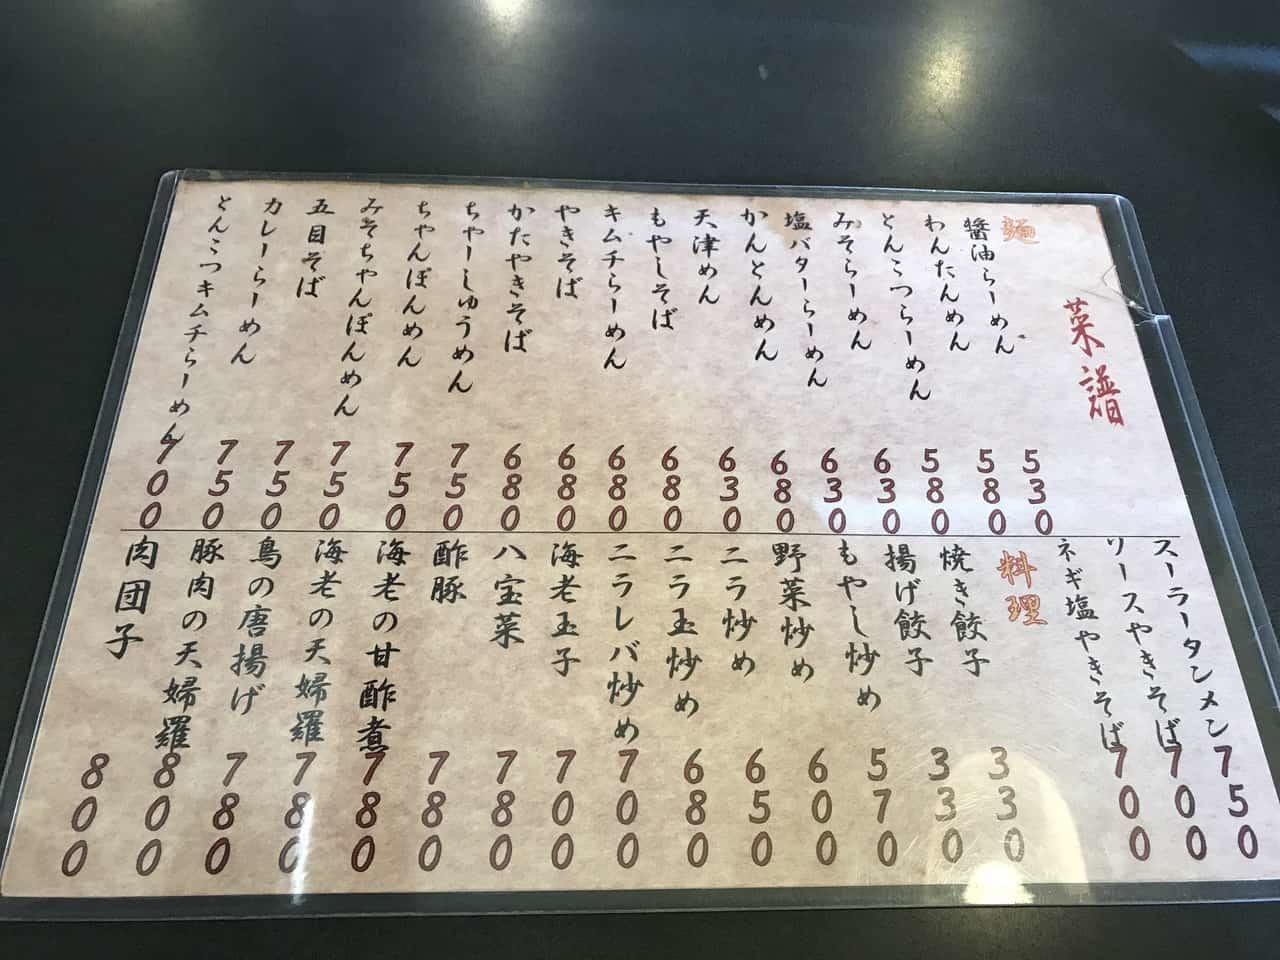 菜譜
麺
醤油らーめん 530
わんたんめん 580
とんこつらーめん 580
みそらーめん 630
塩バターらーめん 630
かんとんめん 680
天津めん 630
もやしそば 680
キムチらーめん 680
やきそば 680
かたやきそば 680
ちゃーしゅうめん 750
ちゃんぽんめん 750
みそちゃんぽんめん 750
五目そば 750
カレーらーめん 750
とんこつキムチらーめん 700
スーラータンメン 750
ソースやきそば 700
ネギ塩やきそば 700
料理
焼き餃子 330
揚げ餃子 330
もやし炒め 570
野菜炒め 600
ニラ炒め 650
ニラ玉炒め 680
ニラレバ炒め 700
海老玉子 700
八宝菜 780
酢豚 780
海老の甘酢煮 780
海老の天婦羅 780
鳥の唐揚げ 780
豚肉の天婦羅 800
肉団子 800